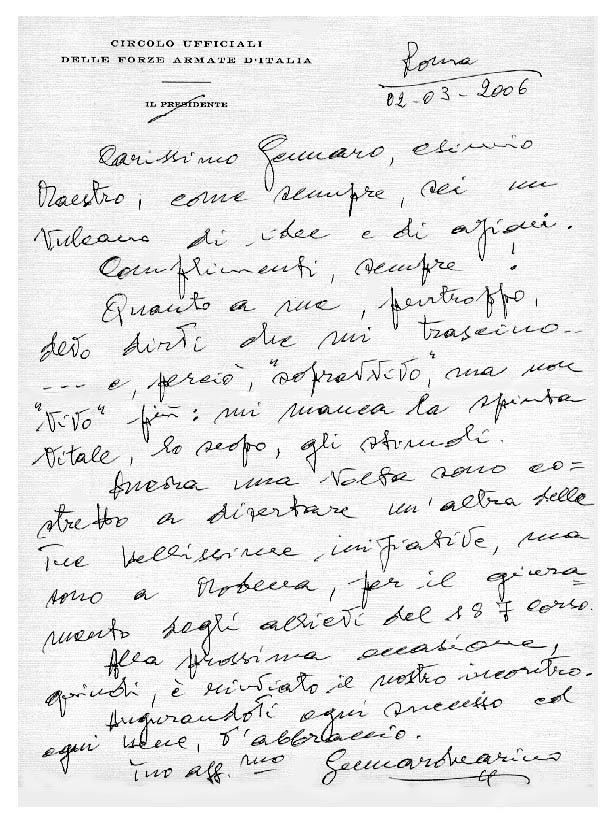 CIRCOLO UFFICIALI
DELLE FORZE ARMATE D'ITALIA
IL PRESIDENTE
Roma
02-03-2006
Carissimo Gennaro, esimio
Maestro, come sempre, sei un
Vulcano di idee e di azioni.
Complimenti, sempre!
Quanto a me, purtroppo,
devo dirti che mi trascino--
--- e, perciò, "sopravvivo", ma non
"vivo" più: mi manca la spinta
vitale, lo scopo, gli stimoli.
Ancora una volta sono co=
stretto a disertare un'altra delle
Tue bellissime iniziative, ma
sono a Modena, per il giura=
mento degli allievi del 187 corso.
Alla prossima occasione,
quindi, è rinviato il nostro incontro.
Augurandoti ogni successo ed
ogni bene, t'abbraccio.
Tuo aff.mo